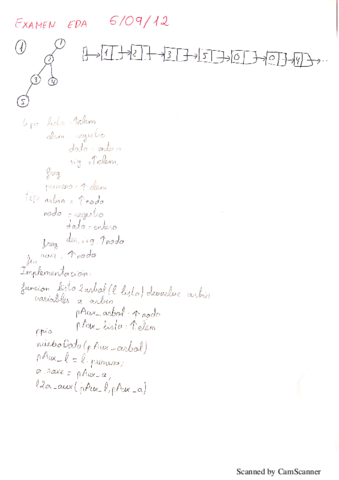 EXAMEN EDA 5/09/12
1
1
2
3 4
5
1 2 3 5 0 0 4 ...
tipo lista: ↑elem
elem = registro
dato: entero
sig: ↑elem
freg
primero: ↑elem
nodo = registro
dato: entero
freg ↑nodo
raiz: ↑nodo
Implementacion:
funcion lista2arbol (l: lista) devuelve arbol
variables a: arbol
pAux_arbol: ↑nodo
pAux_lista: ↑elem
ppio
nuevoDato (pAux_arbol)
pAux_l = l.primero;
a.raiz = pAux_a;
l2a_aux (pAux_l, pAux_a)
Scanned by CamScanner